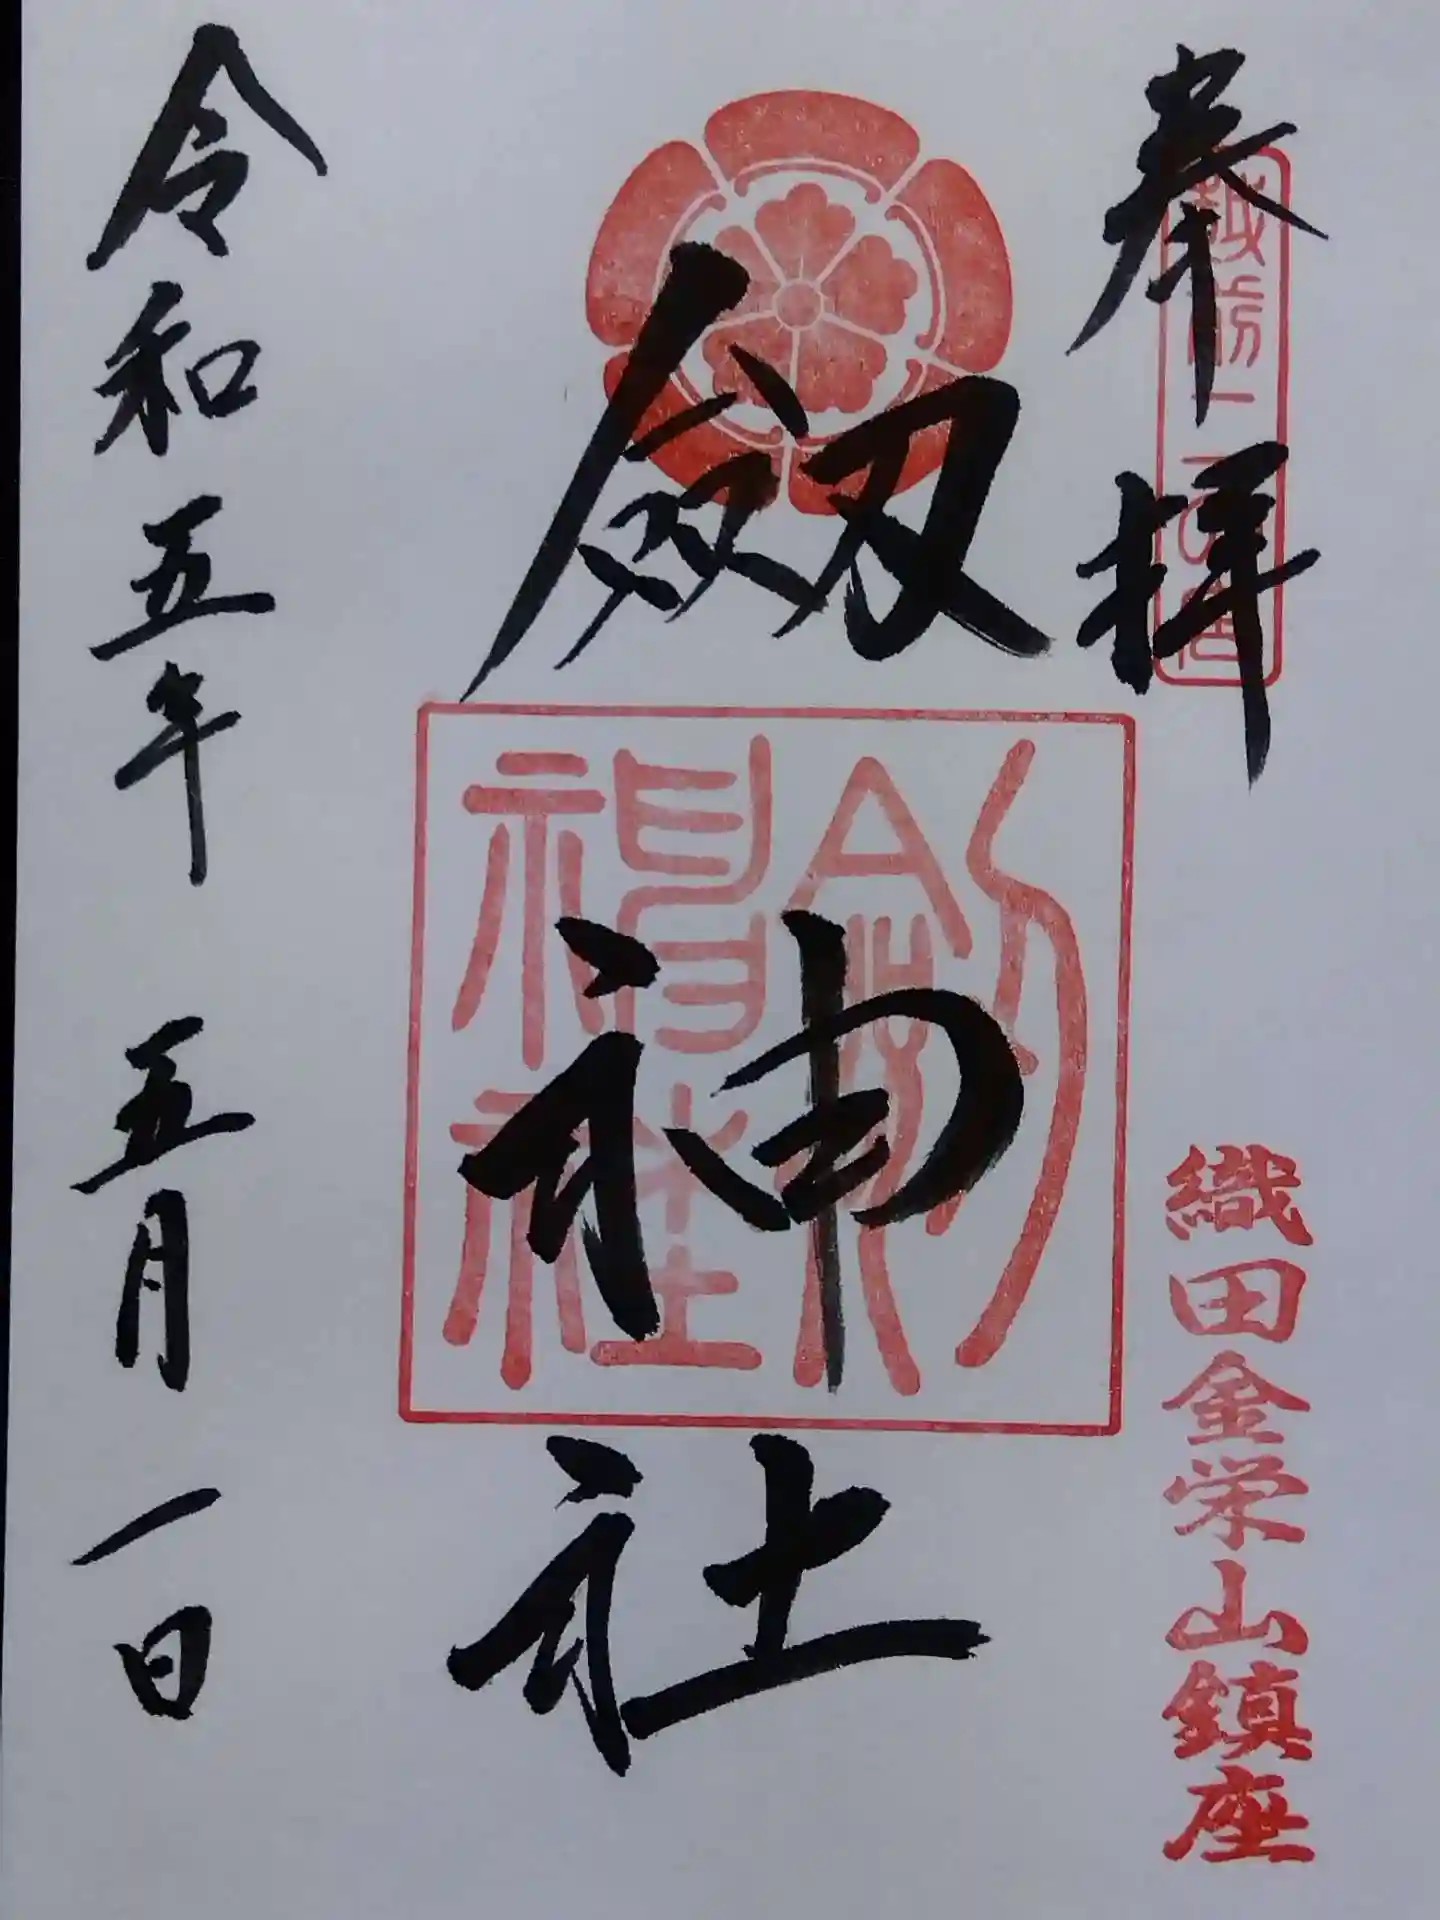 奉拝
越前二の宮
織田金栄山鎮座
劔神社
劔神社
令和五年 五月 一日